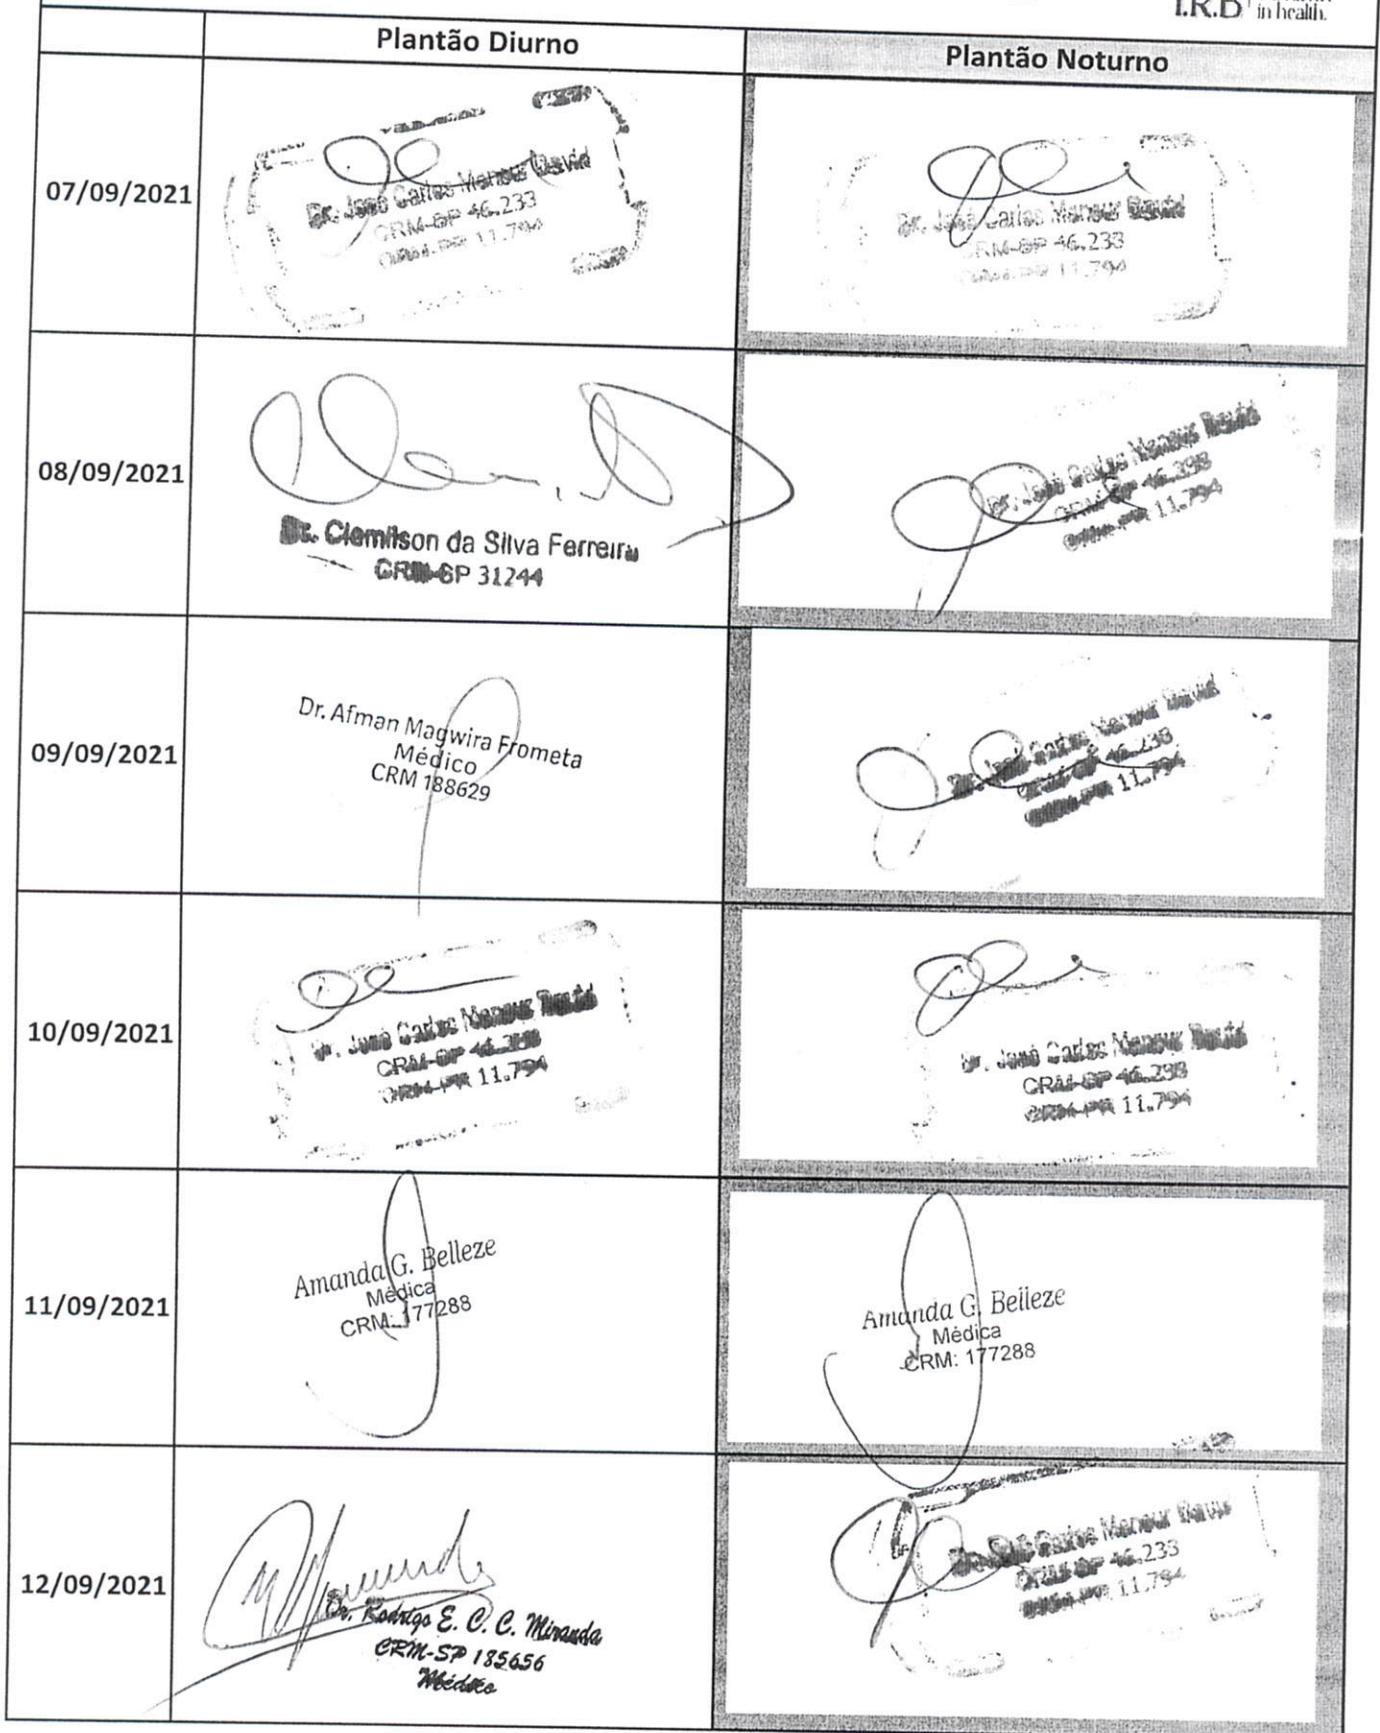 I.R.D in health.
Plantão Diurno
Plantão Noturno
07/09/2021
Dr. José Carlos Mansur David
CRM-SP 46.233
CRM-PR 11.794
Dr. José Carlos Mansur David
CRM-SP 46.233
CRM-PR 11.794
08/09/2021
Dr. Clemilson da Silva Ferreira
CRM-SP 31244
Dr. José Carlos Mansur David
CRM-SP 46.233
CRM-PR 11.794
09/09/2021
Dr. Afman Magwira Frometa
Médico
CRM 188629
Dr. José Carlos Mansur David
CRM-SP 46.233
CRM-PR 11.794
10/09/2021
Dr. José Carlos Mansur David
CRM-SP 46.233
CRM-PR 11.794
Dr. José Carlos Mansur David
CRM-SP 46.233
CRM-PR 11.794
11/09/2021
Amanda G. Belleze
Médica
CRM: 177288
Amanda G. Belleze
Médica
CRM: 177288
12/09/2021
Dr. Rodrigo E. C. C. Miranda
CRM-SP 185656
Médico
Dr. José Carlos Mansur David
CRM-SP 46.233
CRM-PR 11.794